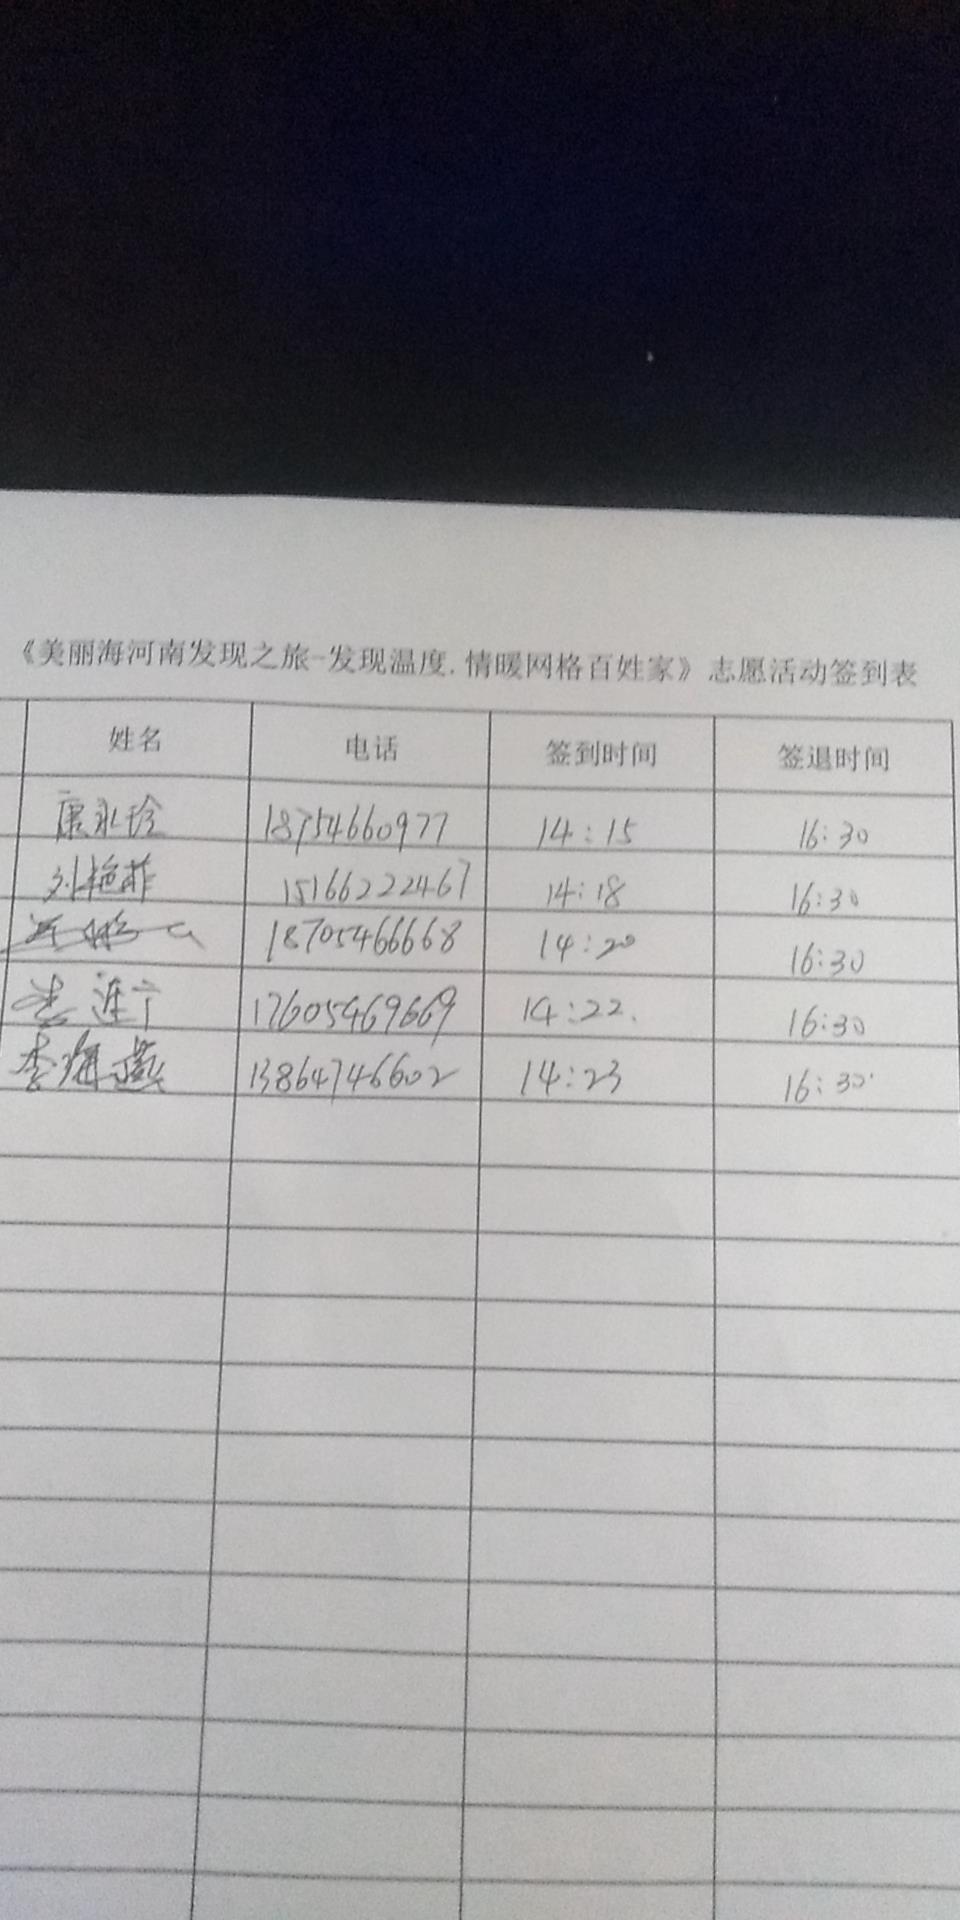 《美丽海河南发现之旅-发现温度.情暖网格百姓家》志愿活动签到表
姓名 电话 签到时间 签退时间
康永玲 18754660977 14:15 16:30
刘艳菲 15166222467 14:18 16:30
18705466668 14:20 16:30
17605469669 14:22. 16:30
李海燕 13864746602 14:23 16:30